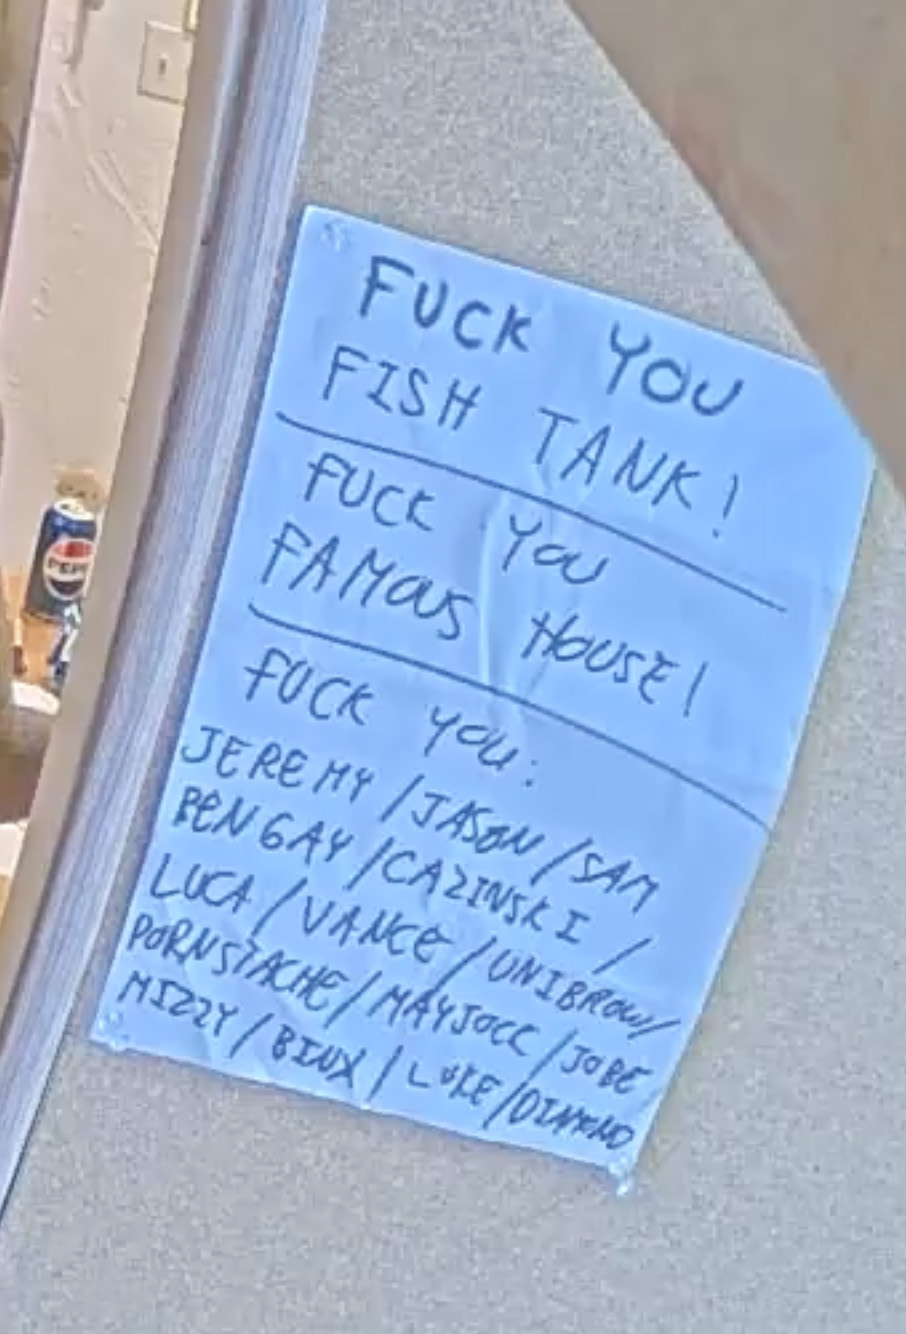 FUCK YOU
FISH TANK!
FUCK YOU
FAMOUS HOUSE!
FUCK YOU:
JEREMY / JASON / SAM
BEN GAY / CAZINSKI /
LUCA / VANCE / UNIBROW /
PORNSTACHE / MAYJOCC / JOBE
MIZZY / BINX / LUKE / DIAMOND
PEPSI